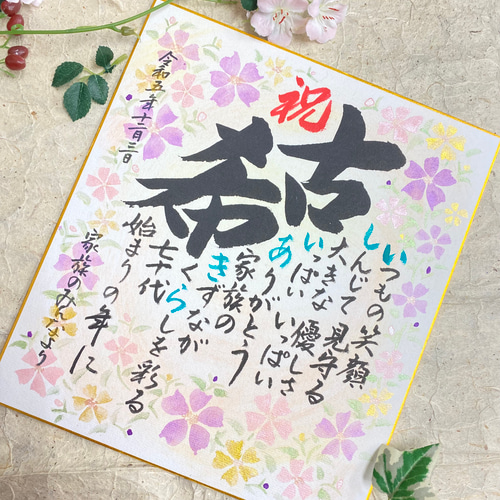 祝
古希
いつもの笑顔
しんじて見守る
大きな優しさ
いっぱいいっぱい
ありがとう
家族の
きずなが
くらしを彩る
七十代
始まりの年に
家族のみんなより
令和五年十二月三日